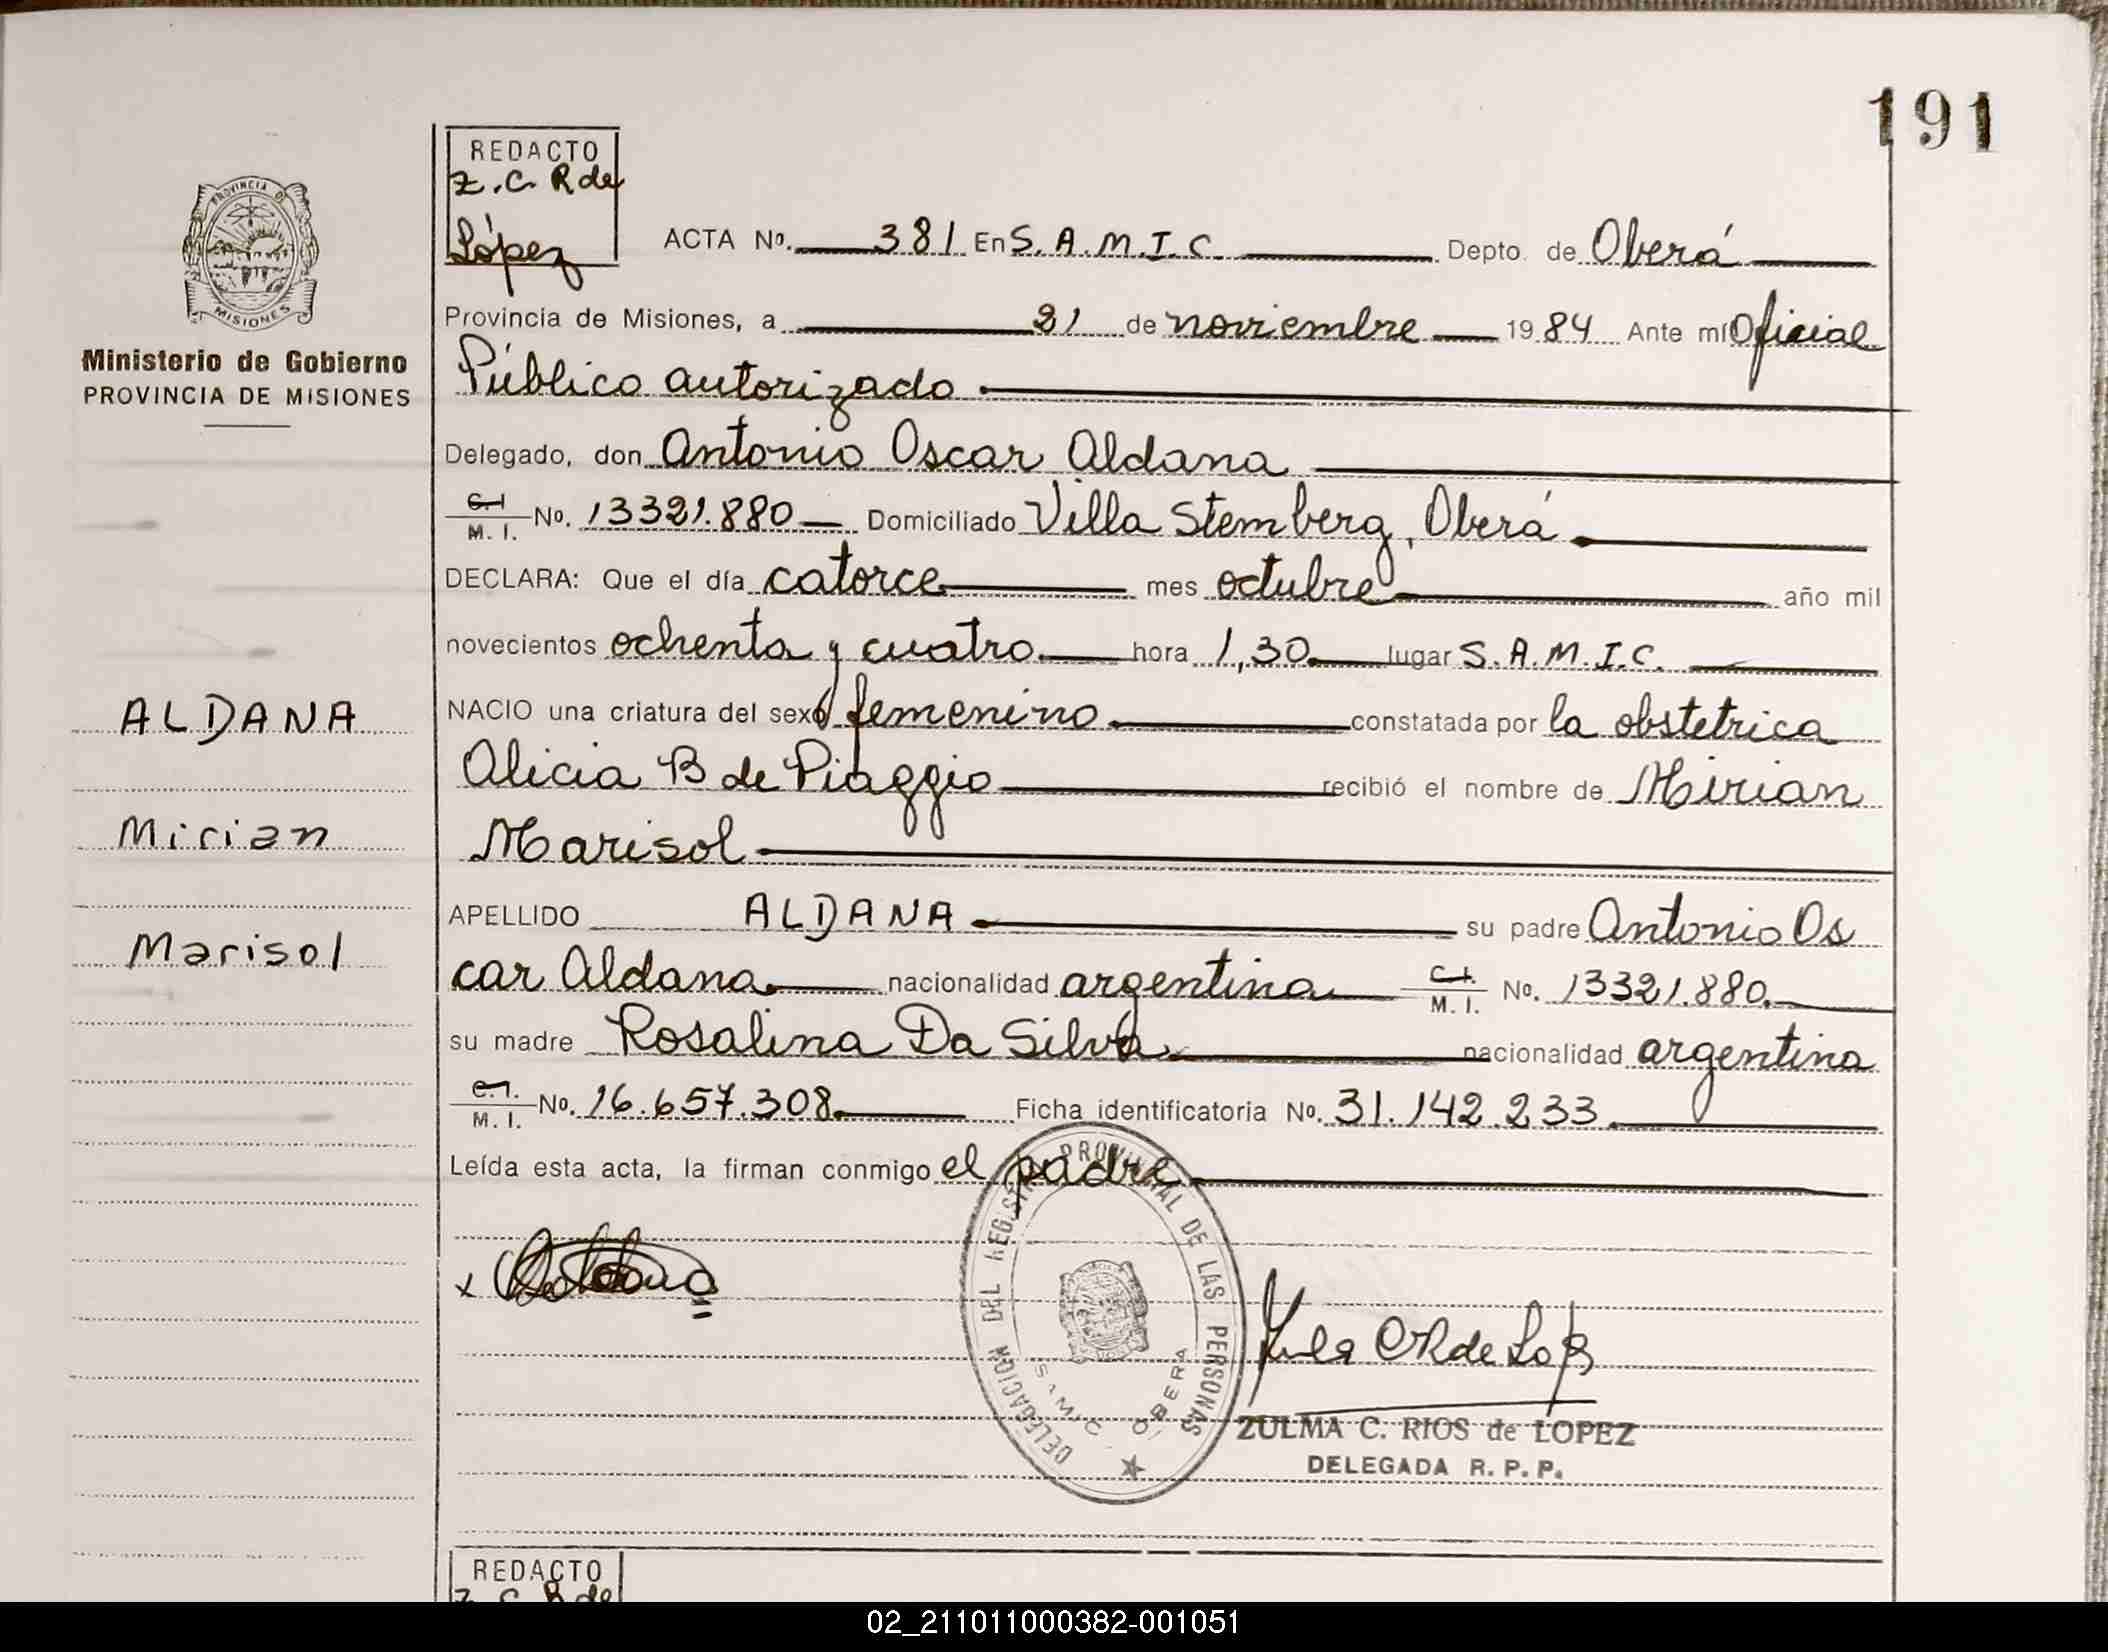 191
REDACTO
Z. C. R de
López
ACTA Nº. 381 En S. A. M. I. C. Depto. de Oberá
PROVINCIA DE
MISIONES
Provincia de Misiones, a 21 de noviembre 1984 Ante mí Oficial
Ministerio de Gobierno
PROVINCIA DE MISIONES
Público autorizado
Delegado, don Antonio Oscar Aldana
C. I.
M. I. No. 13321.880 Domiciliado Villa Stemberg, Oberá
DECLARA: Que el día catorce mes octubre año mil
novecientos ochenta y cuatro hora 1,30 lugar S. A. M. I. C.
ALDANA
NACIO una criatura del sexo femenino constatada por la obstetrica
Alicia B de Piaggio recibió el nombre de Mirian
Mirian
Marisol
APELLIDO ALDANA su padre Antonio Os
Marisol
car Aldana nacionalidad argentina C. I. M. I. No. 13321.880
su madre Rosalina Da Silva nacionalidad argentina
C. I.
M. I. No. 16.657.308 Ficha identificatoria No. 31.142.233
Leída esta acta, la firman conmigo el padre
x
DELEGACION DEL REGISTRO PROVINCIAL DE LAS PERSONAS
SAMIC OBERA
ZULMA C. RIOS de LOPEZ
DELEGADA R. P. P.
REDACTO
Z. C. R de
02_211011000382-001051